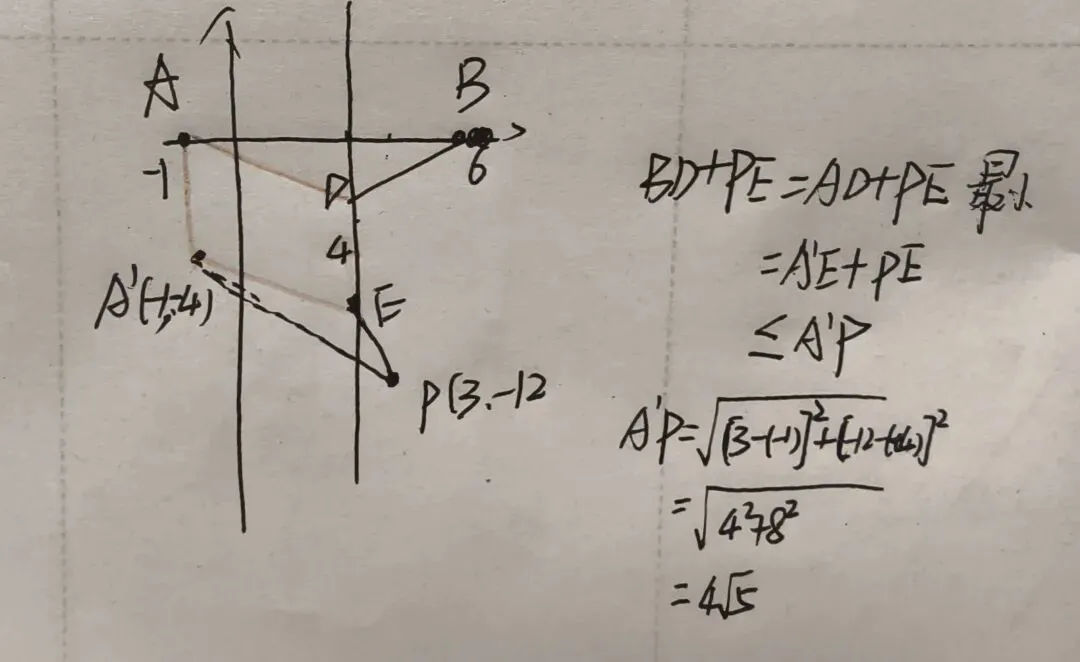 A
B
-1
6
D
4
A'(-1,-4)
E
P(3,-12
BD+PE=AD+PE最小
=A'E+PE
≤A'P
A'P=√[3-(-1)]²+[-12-(-4)]²
=√4²+8²
=4√5